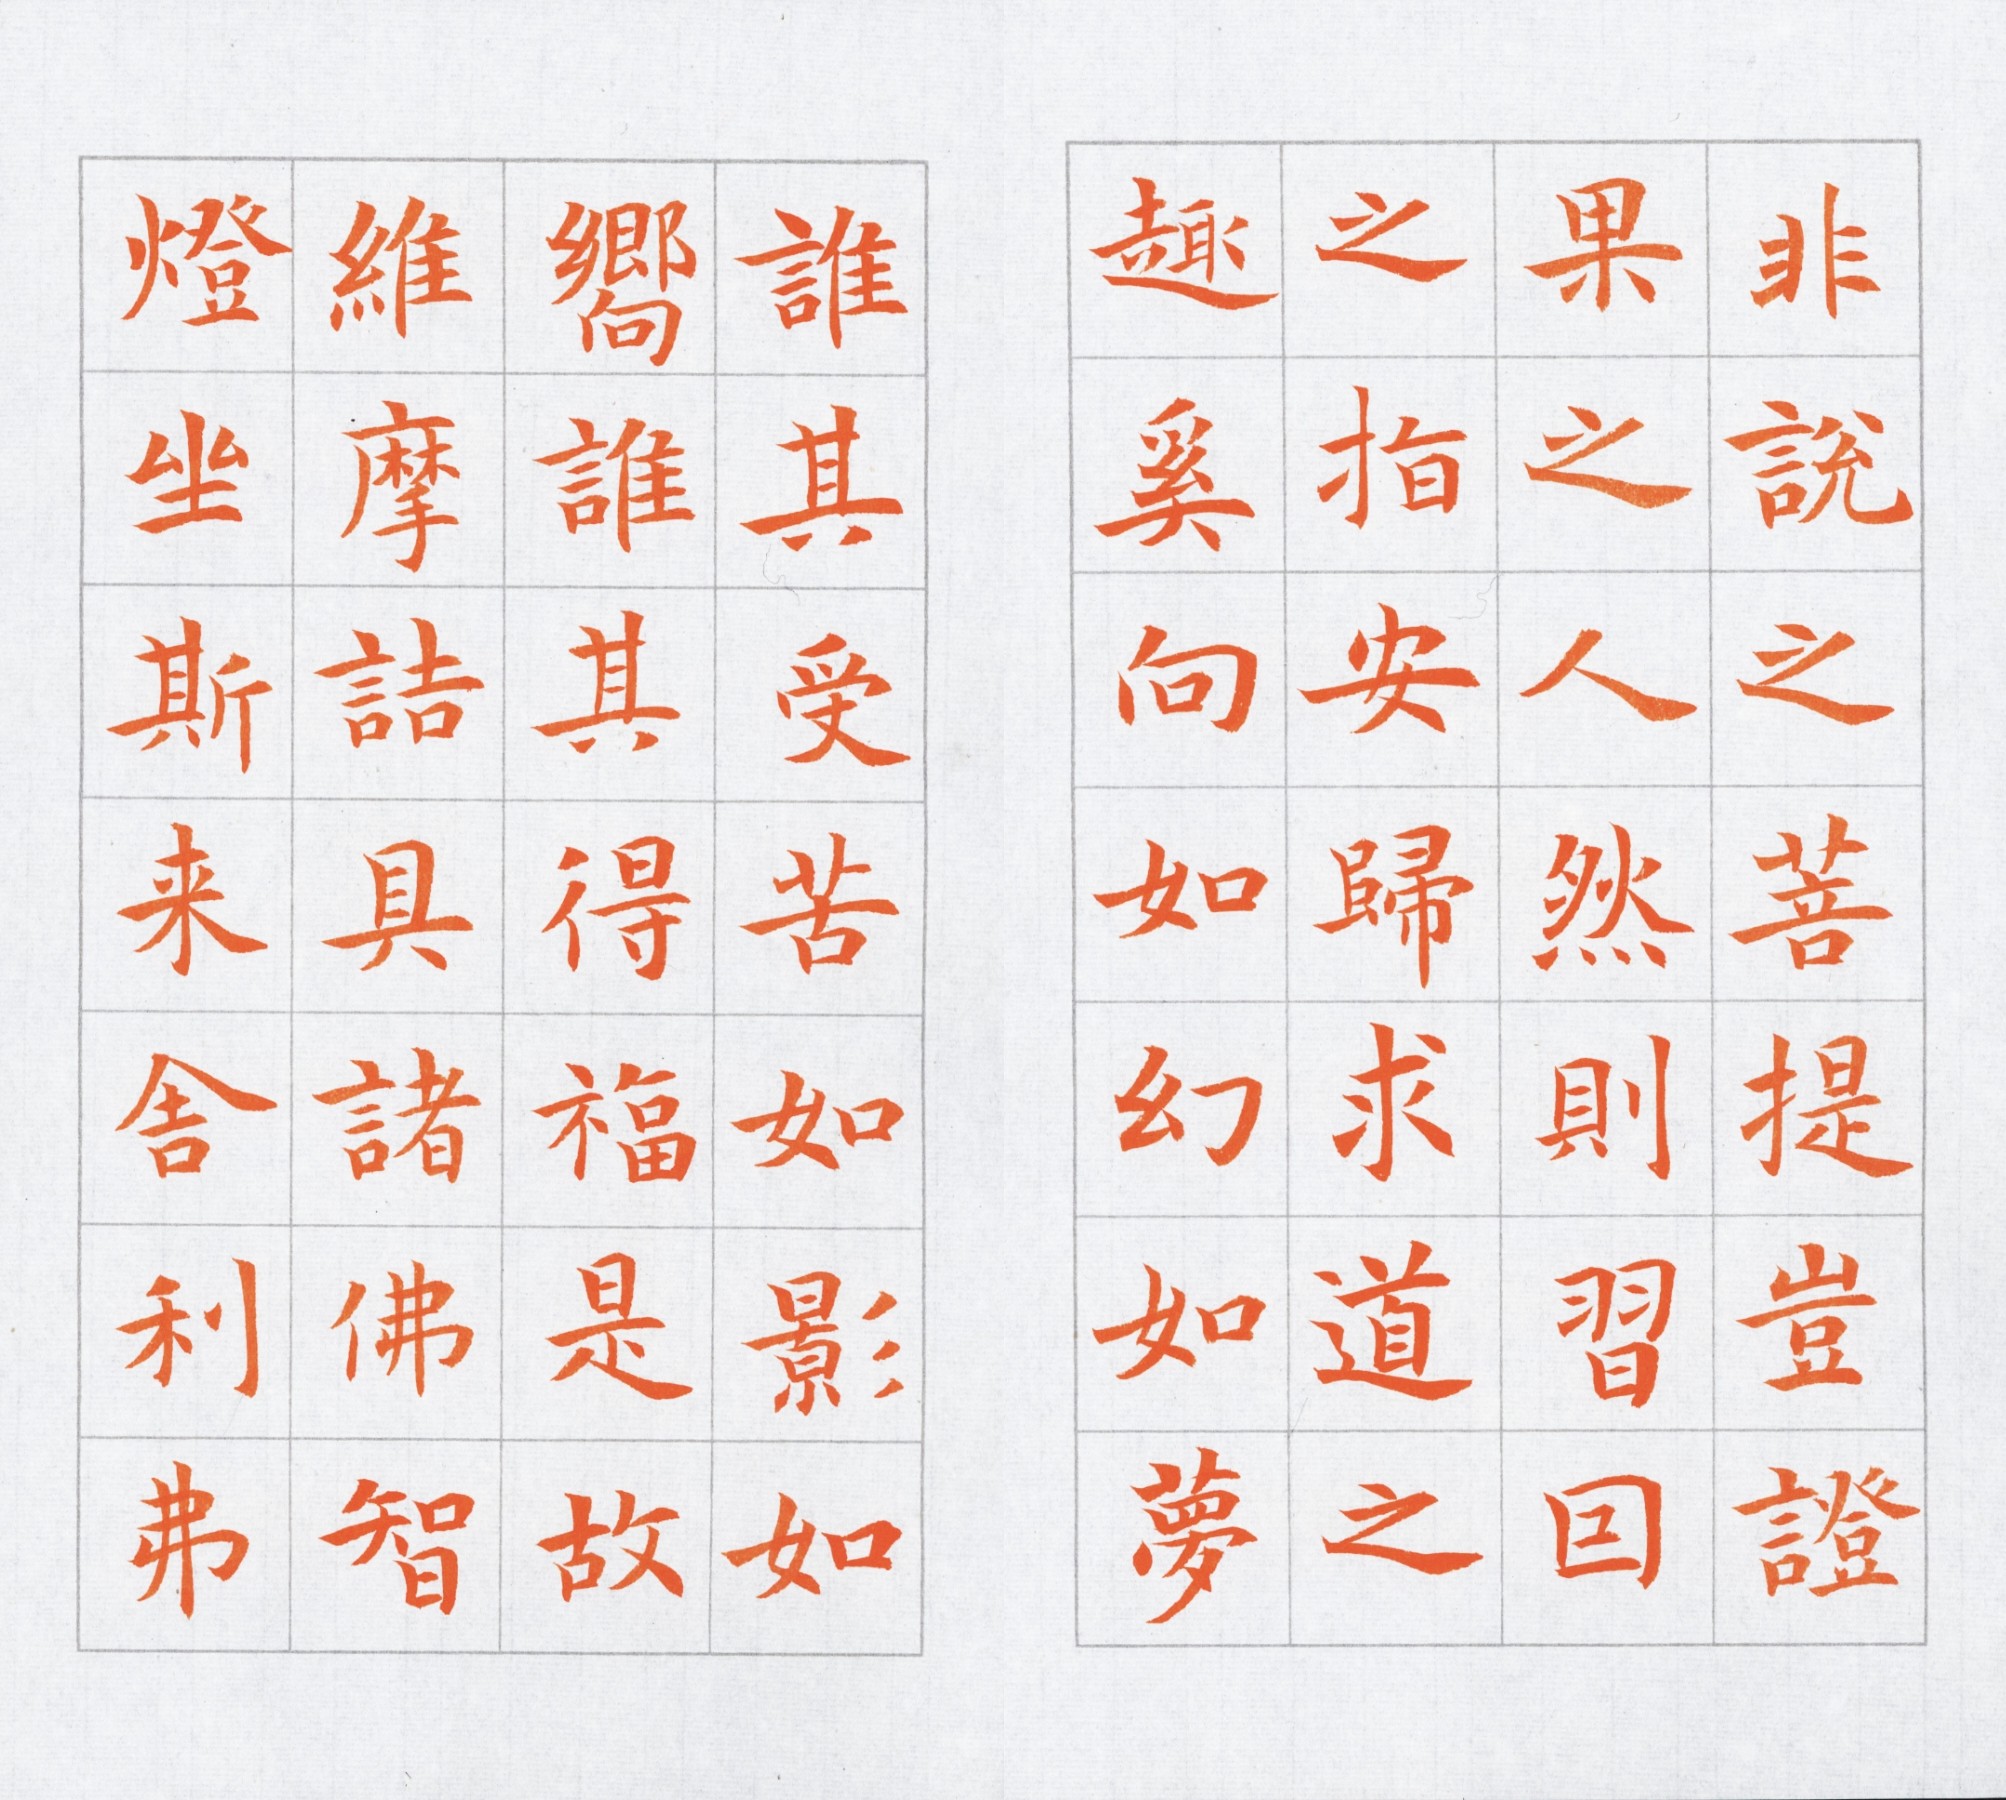 非說之菩提豈證
果之人然則習回
之指安歸求道之
趣奚向如幻如夢
誰其受苦如影如
嚮誰其得福是故
維摩詰具諸佛智
燈坐斯来舍利弗